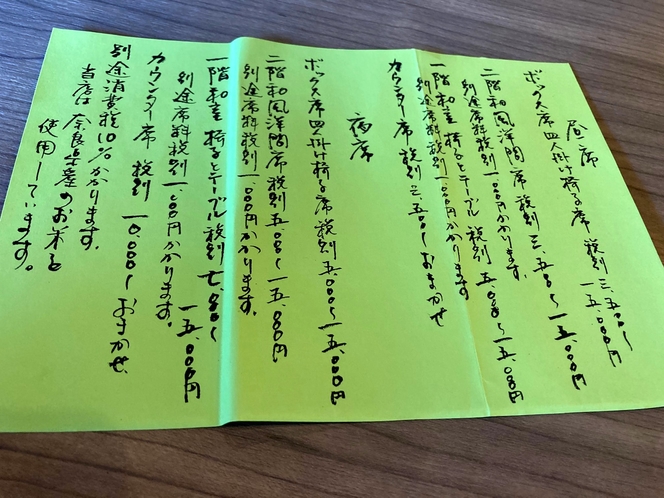 昼席
ボックス席四人掛け椅子席 税別 三、五〇〇〜
一五、〇〇〇円
二階和風洋間席 税別 三、五〇〇〜一五、〇〇〇円
別途席料税別一、〇〇〇円かかります。
一階和室 椅子とテーブル 税別 五、〇〇〇〜一五、〇〇〇円
別途席料税別一、〇〇〇円かかります
カウンター席 税別 三、五〇〇〜おまかせ
夜席
ボックス席四人掛け椅子席 税別 五、〇〇〇〜一五、〇〇〇円
二階和風洋間席税別 五、〇〇〇〜一五、〇〇〇円
別途席料税別一、〇〇〇円かかります。
一階和室 椅子とテーブル 税別 七、〇〇〇〜
一五、〇〇〇円
別途席料税別一、〇〇〇円かかります。
カウンター席 税別 一〇、〇〇〇〜おまかせ
別途消費税10%かかります。
当店は奈良県産のお米を
使用しています。